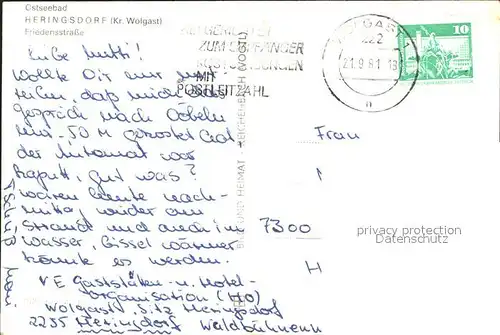 Ostseebad
HERINGSDORF (Kr. Wolgast)
Friedensstraße
Liebe Mutti!
Wollte Dir nur
teilen, daß mich das
gespräch nach Döbeln
nur -50 M gekostet hat
der Automat war
kaputt, gut was?
waren heute nach-
mittag wieder am
Strand und auch im
Wasser, bissel wärmer
könnte es werden.
Tschüß
VE Gaststätten- u. Hotel-
organisation (HO)
Wolgast, Sitz Heringsdorf
2255 Heringsdorf
ZUM EMPFÄNGER
MIT
POSTLEITZAHL
WOLGAST 1
222
21.9.81-18
n
10
BILD UND HEIMAT REICHENBACH (VOGTL)
Frau
7300
H
privacy protection
Datenschutz